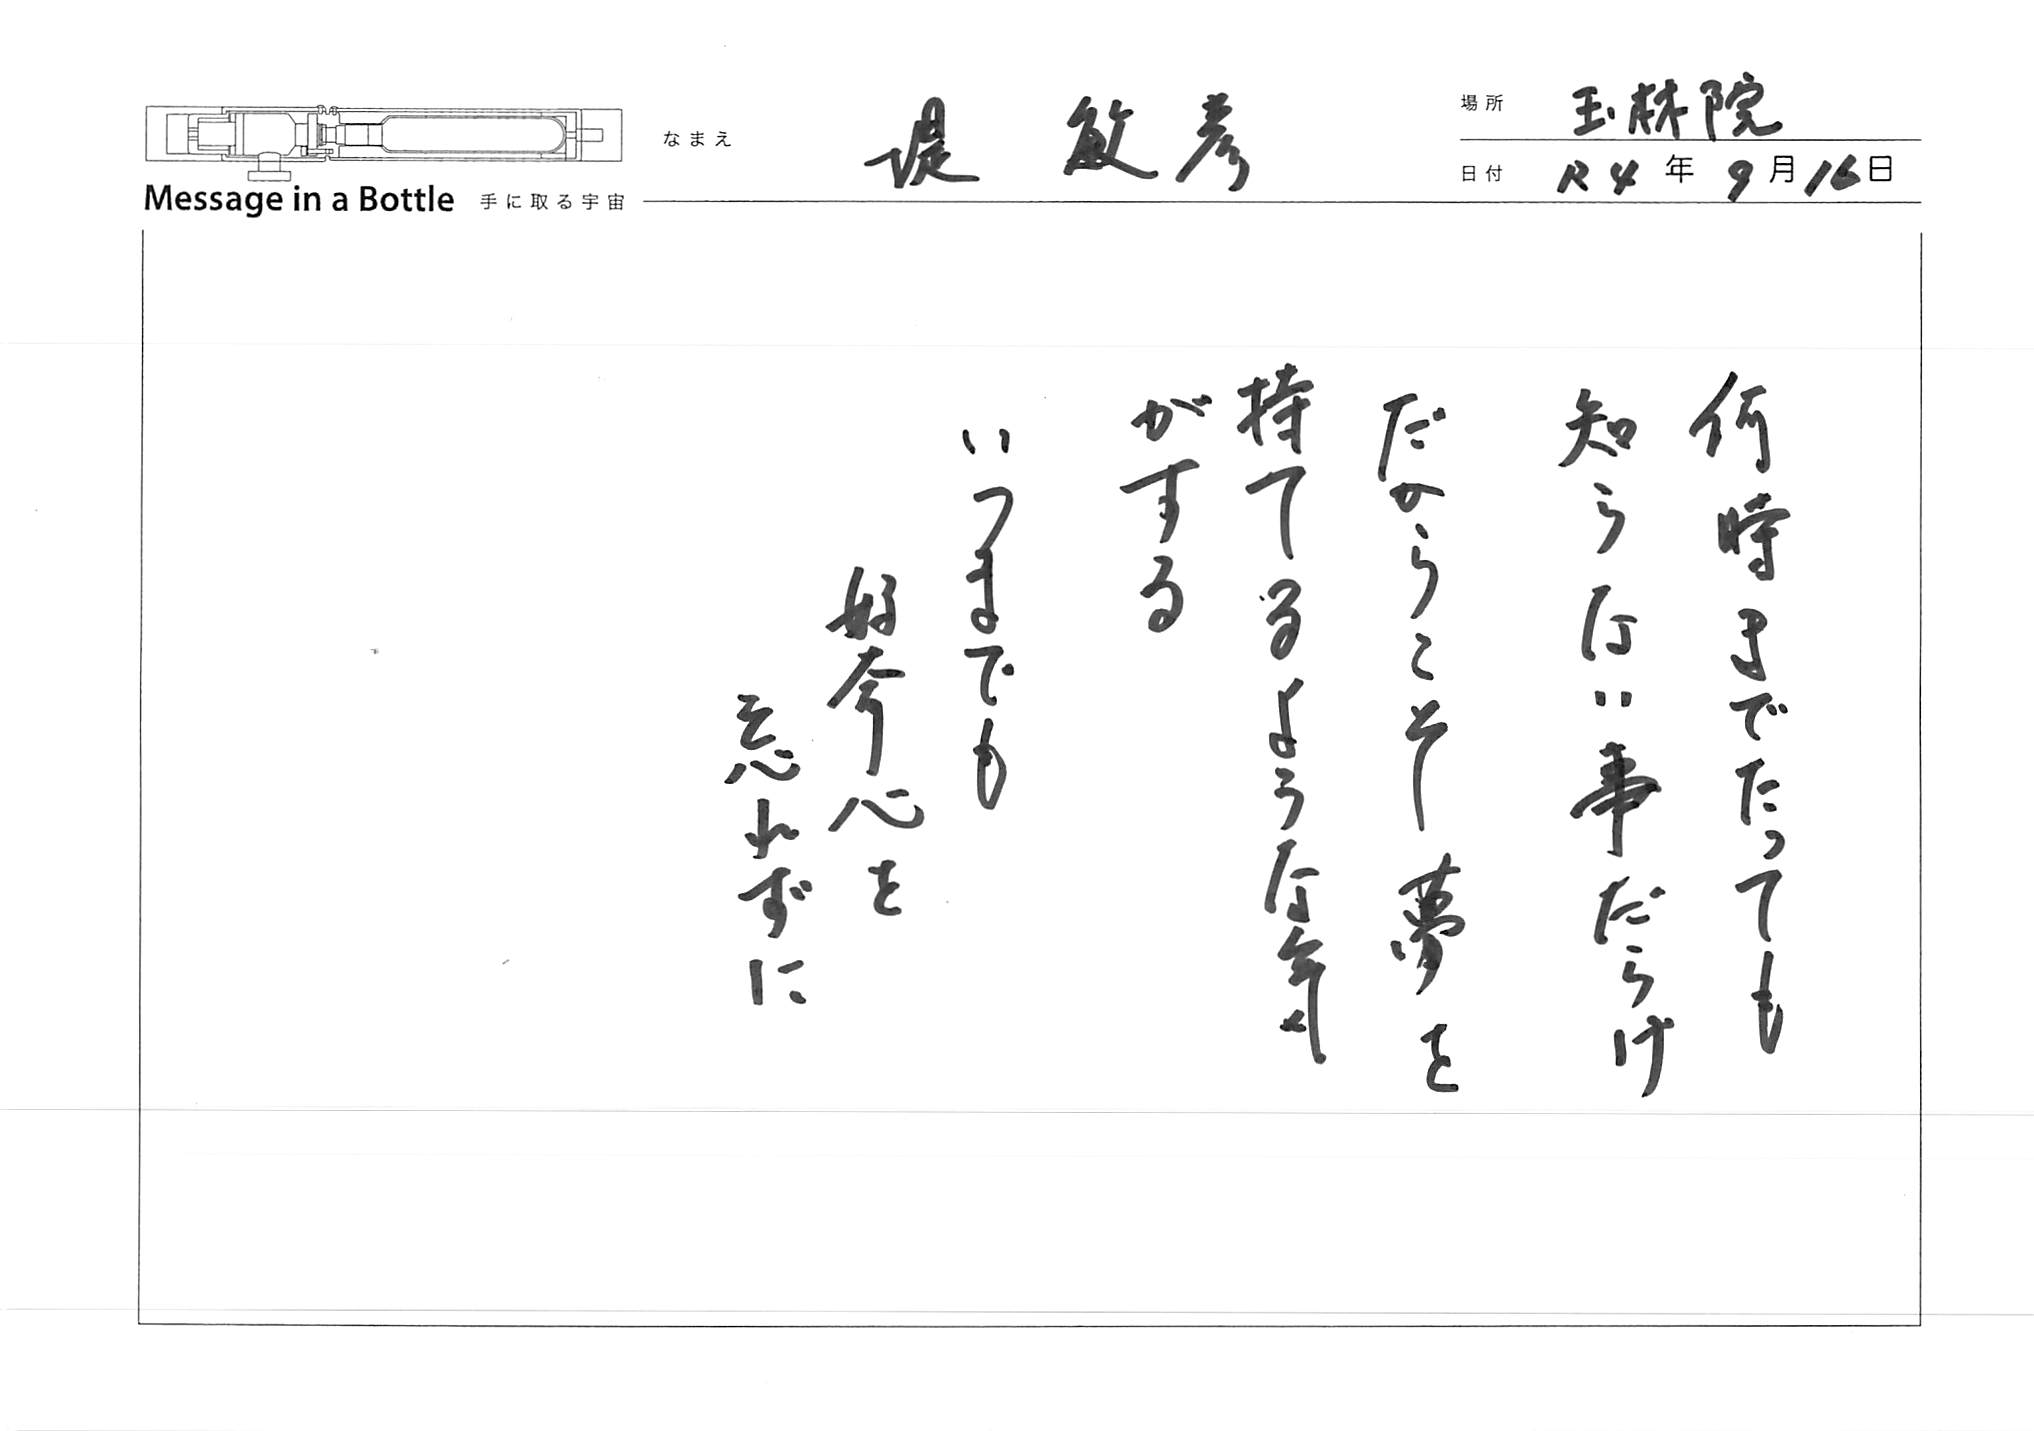 なまえ 堤 敏彦
場所 玉林院
日付 R4年9月16日
Message in a Bottle 手に取る宇宙
何時までたっても
知らない事だらけ
だからこそ夢を
持てるような気
がする
いつまでも
好奇心を
忘れずに